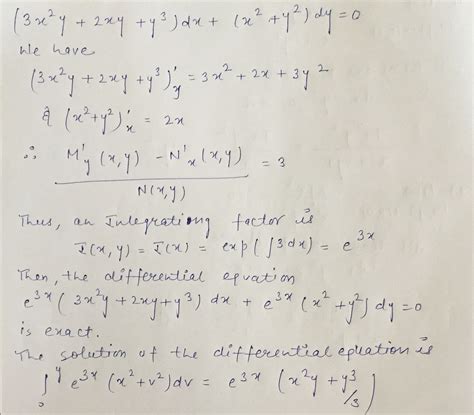 (3x²y + 2xy + y³)dx + (x² + y²)dy = 0
We have
(3x²y + 2xy + y³)'ₓ = 3x² + 2x + 3y²
& (x² + y²)'ₓ = 2x
∴ (M'_y (x,y) - N'ₓ(x,y)) / N(x,y) = 3
Thus, an Integrationg factor is
I(x,y) = I(x) = exp(∫3dx) = e^{3x}
Then, the differential eqvation
e^{3x}(3x²y + 2xy + y³) dx + e^{3x}(x² + y²) dy = 0
is exact.
The solution of the differential eqution is
∫₀^y e^{3x} (x² + v²)dv = e^{3x} (x²y + y³/3)